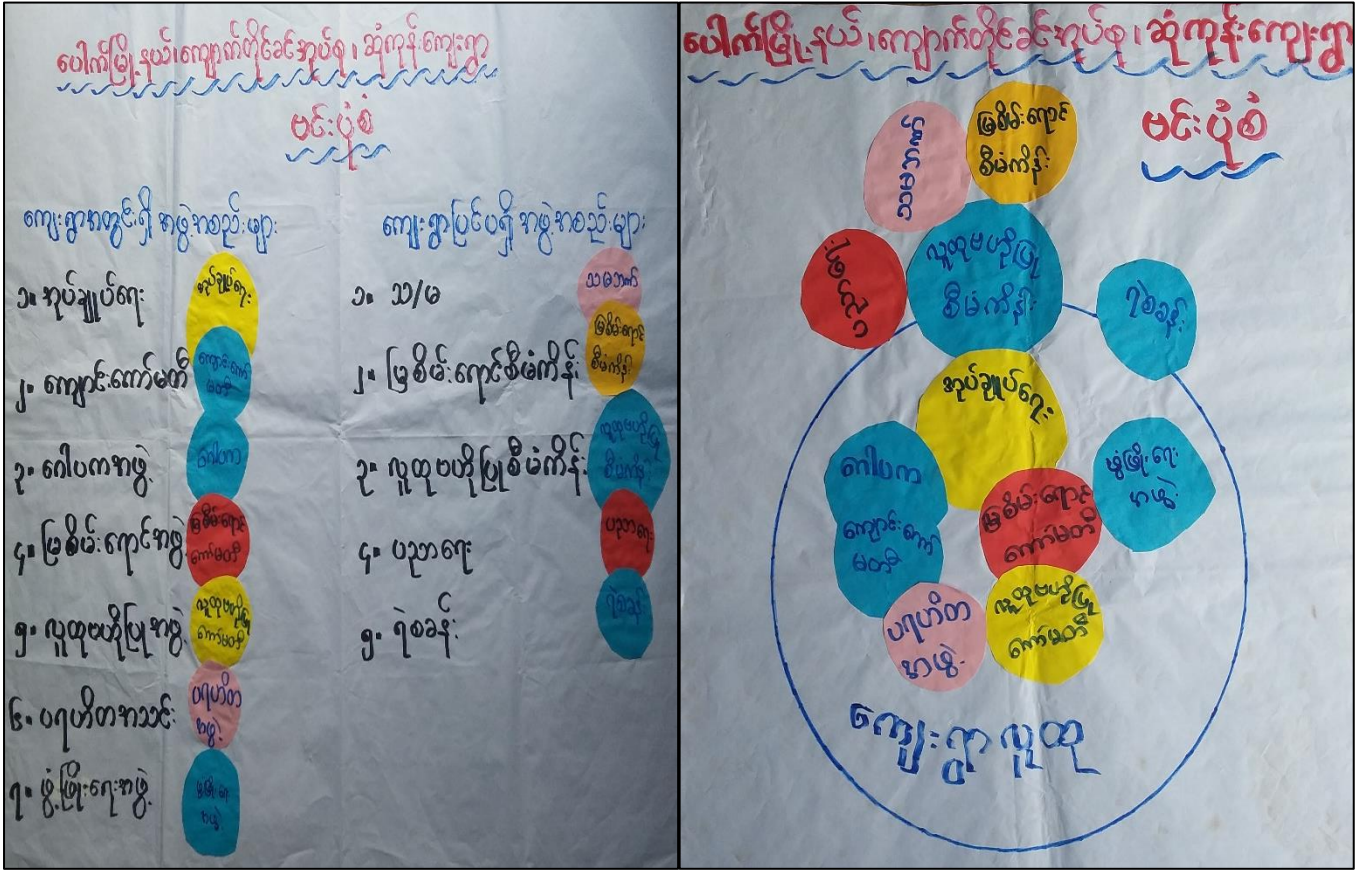 ပေါက်မြို့နယ်၊ကျောက်တိုင်ခင်အုပ်စု၊ဆုံကုန်းကျေးရွာ
ဗင်းပုံစံ
ကျေးရွာအတွင်းရှိ အဖွဲ့အစည်းများ
၁။ အုပ်ချူပ်ရေး
အုပ်ချူပ်ရေး
၂။ ကျောင်းကော်မတီ
ကျောင်းကော်
မတီ
၃။ ဂေါပကအဖွဲ့
ဂေါပက
၄။ မြစိမ်းရောင်အဖွဲ့
မြစိမ်းရောင်
ကော်မတီ
၅။ လူထုဗဟိုပြုအဖွဲ့
လူထုဗဟိုပြု
ကော်မတီ
၆။ ပရဟိတအသင်း
ပရဟိတ
အဖွဲ့
၇။ ဖွံ့ဖြိုးရေးအဖွဲ့
ဖွံ့ဖြိုးရေး
အဖွဲ့
ကျေးရွာပြင်ပရှိ အဖွဲ့အစည်းများ
၁။ သ/မ
သမဘက်
၂။ မြစိမ်းရောင်စီမံကိန်း
မြစိမ်းရောင်
စီမံကိန်း
၃။ လူထုဗဟိုပြုစီမံကိန်း
လူထုဗဟိုပြု
စီမံကိန်း
၄။ ပညာရေး
ပညာရေး
၅။ ရဲစခန်း
ရဲစခန်း
ပေါက်မြို့နယ်၊ကျောက်တိုင်ခင်အုပ်စု၊ဆုံကုန်းကျေးရွာ
ဗင်းပုံစံ
သမဘက်
မြစိမ်းရောင်
စီမံကိန်း
လူထုဗဟိုပြု
စီမံကိန်း
ပညာရေး
ရဲစခန်း
အုပ်ချူပ်ရေး
ဂေါပက
ကျောင်းကော်
မတီ
မြစိမ်းရောင်
ကော်မတီ
ဖွံ့ဖြိုးရေး
အဖွဲ့
ပရဟိတ
အဖွဲ့
လူထုဗဟိုပြု
ကော်မတီ
ကျေးရွာလူထု